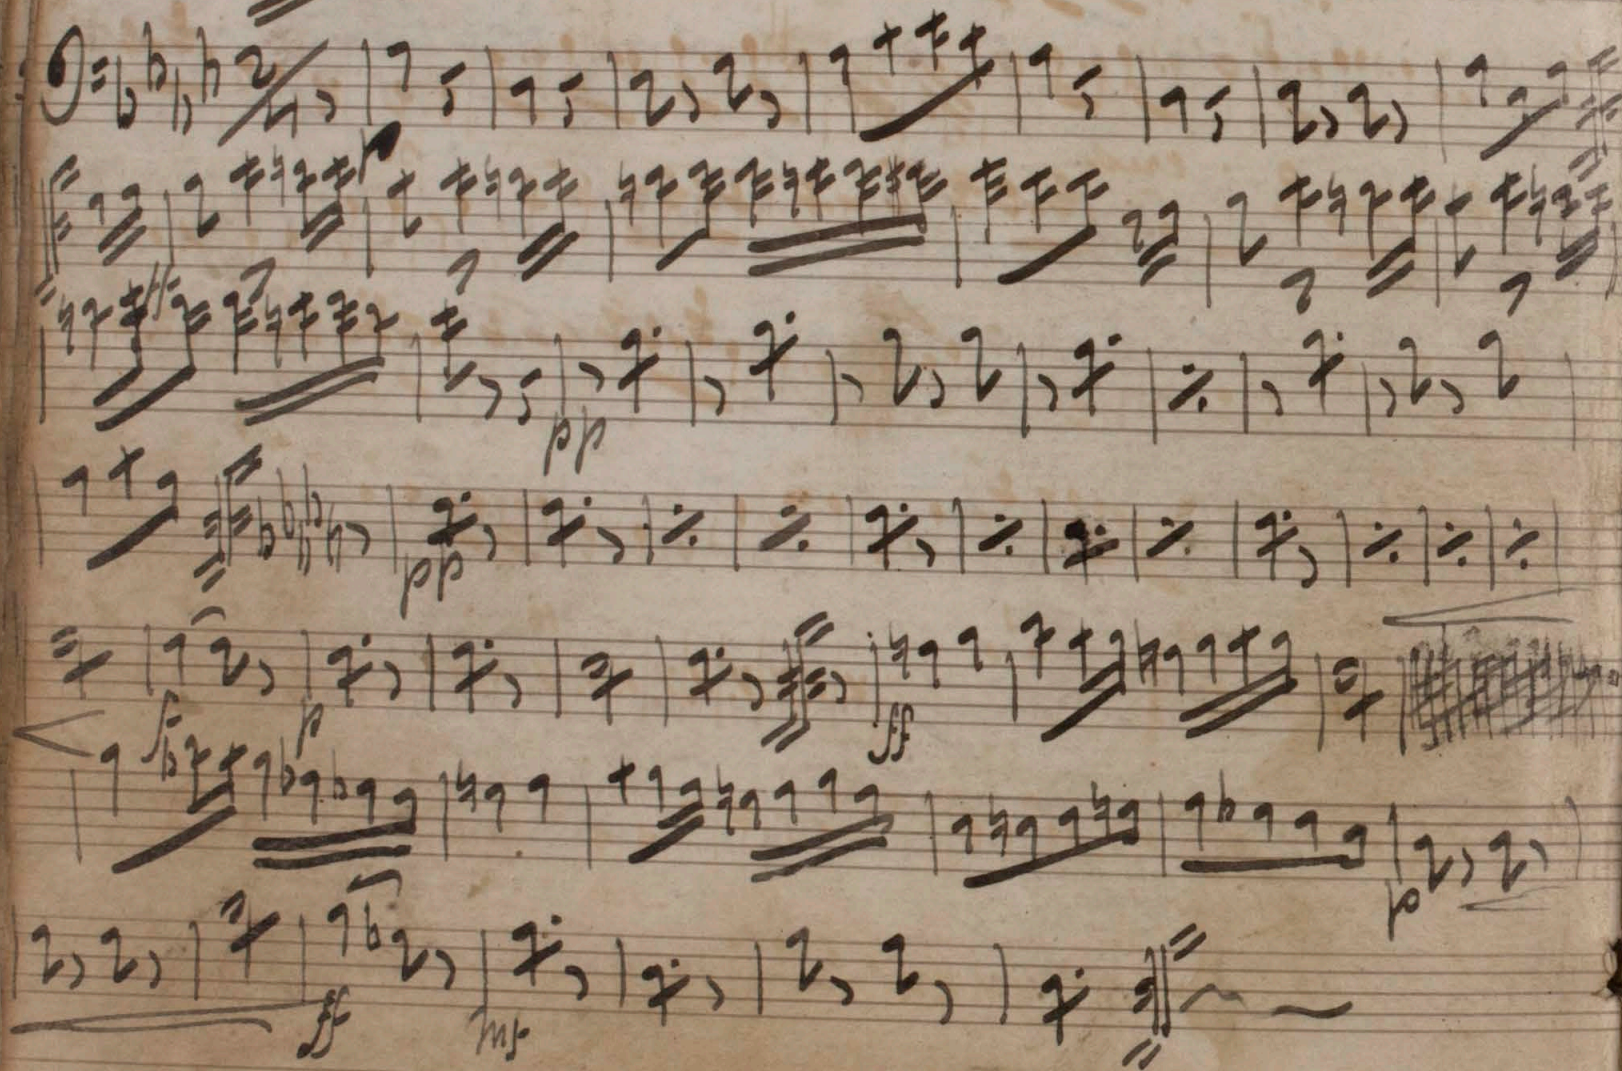 p
pp
pp
f p ff
p
ff mf